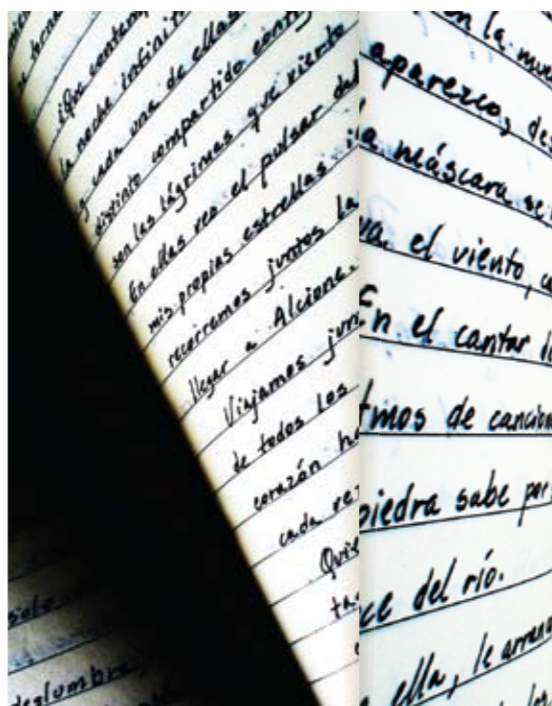 se torna
¡Que contemp
la noche infinit
y cada una de ellas
distinto compartido contig
son las lágrimas que vierto
En ellas veo el pulsar de
mis propias estrellas
recorremos juntos la
llegar a Alcione.
Viajamos jun
de todos los
corazón h
cada re
Quie
ta
solo
deslumbra
en la mu
aparezco, des
a máscara se
va el viento, c
En el cantar l
tmos de cancion
piedra sabe por
ce del río.
ella, le arran
los